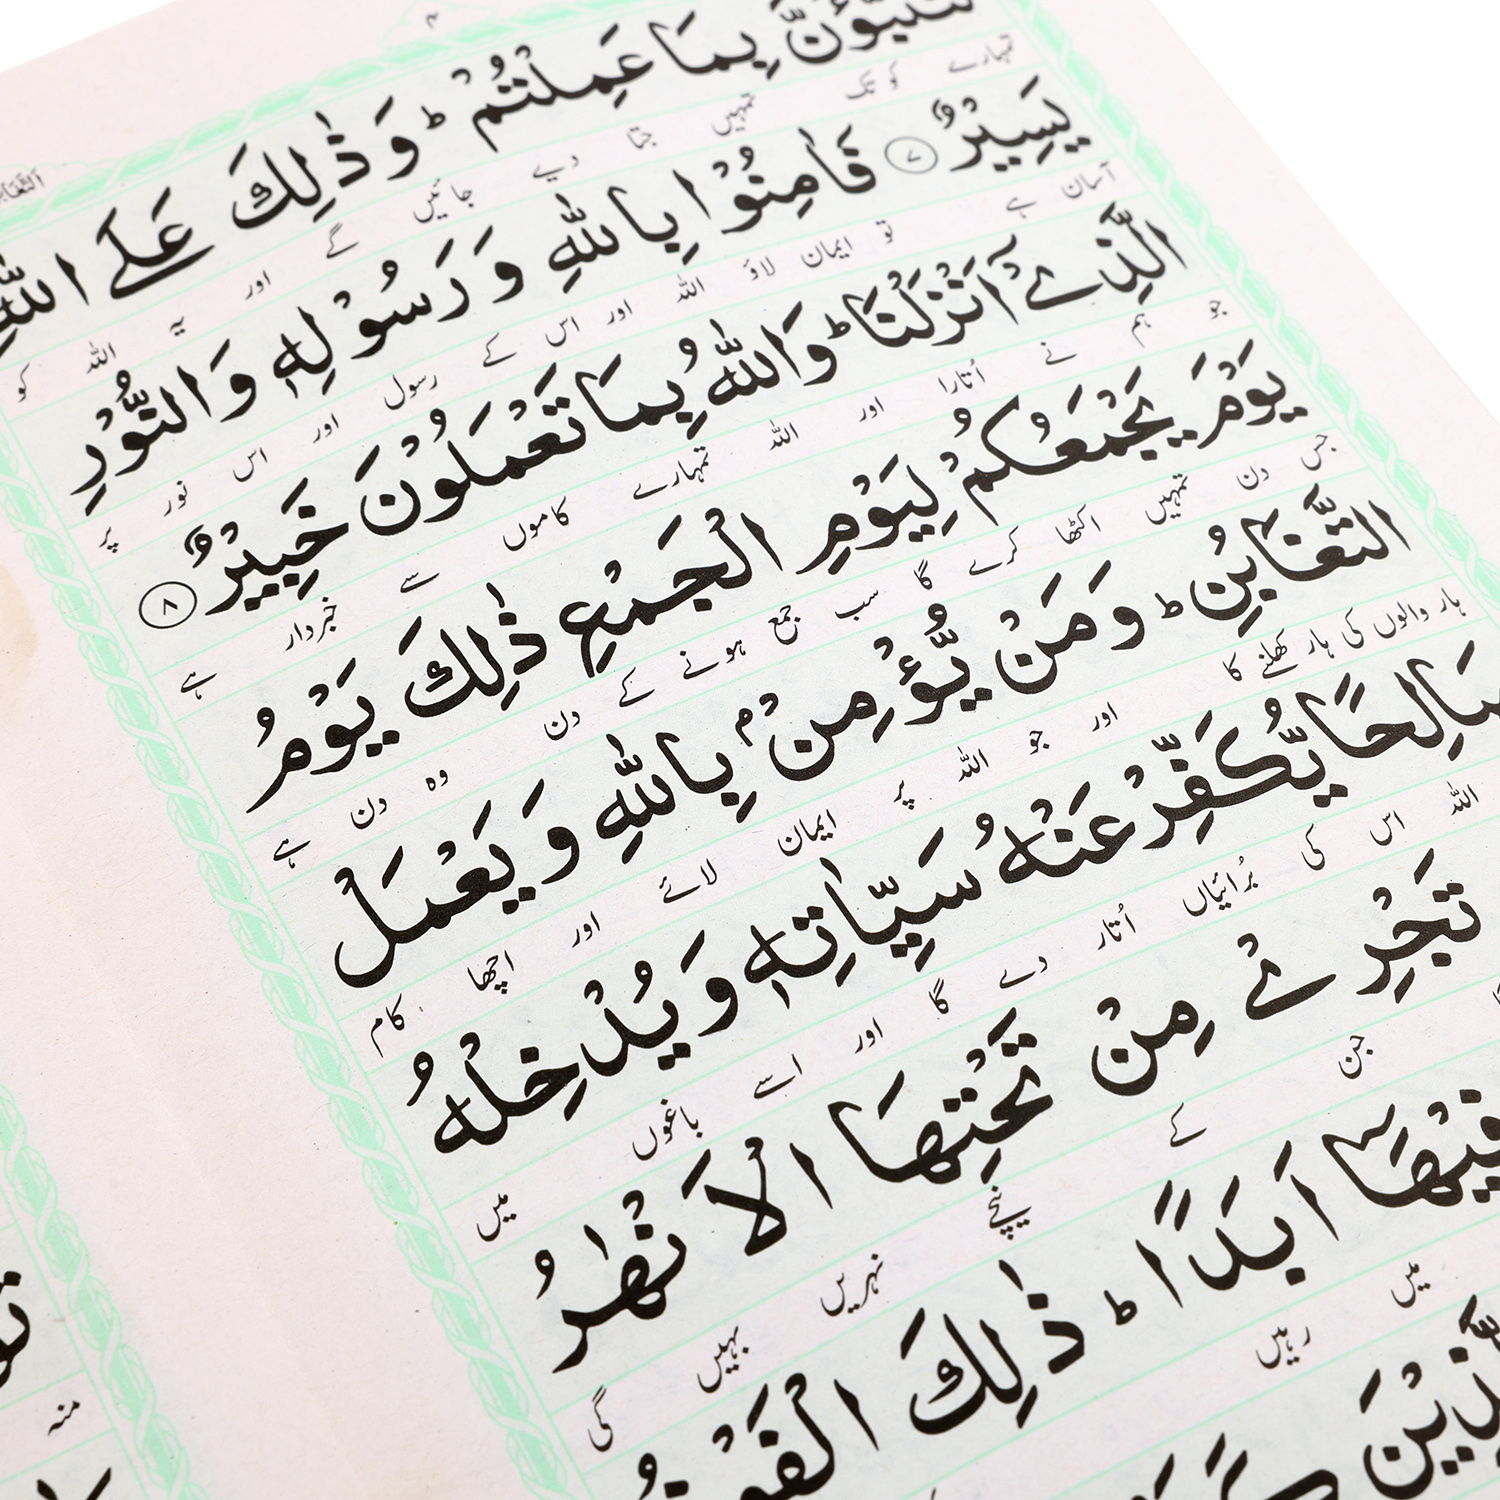 التغابن
لَتُنَبَّؤُنَّ بِمَا عَمِلْتُمْ ؕ وَ ذٰلِكَ عَلَی اللّٰهِ
تمہارے کوتک تمہیں جتا دیے جائیں گے اور یہ اللہ کو
یَسِیْرٌ ۷ فَاٰمِنُوْا بِاللّٰهِ وَ رَسُوْلِهٖ وَ النُّوْرِ
آسان ہے تو ایمان لاؤ اللہ اور اس کے رسول اور اس نور پر
الَّذِیْۤ اَنْزَلْنَا ؕ وَ اللّٰهُ بِمَا تَعْمَلُوْنَ خَبِیْرٌ ۸
جو ہم نے اُتارا اور اللہ تمہارے کاموں سے خبردار ہے
یَوْمَ یَجْمَعُكُمْ لِیَوْمِ الْجَمْعِ ذٰلِكَ یَوْمُ
جس دن تمہیں اکٹھا کرے گا سب جمع ہونے کے دن وہ دن ہے
التَّغَابُنِ ؕ وَ مَنْ یُّؤْمِنْۢ بِاللّٰهِ وَ یَعْمَلْ
ہار والوں کی ہار کھلنے کا اور جو اللہ پر ایمان لائے اور اچھا کام
صَالِحًا یُّكَفِّرْ عَنْهُ سَیِّاٰتِهٖ وَ یُدْخِلْهُ
اللہ اس کی بُرائیاں اُتار دے گا اور اسے باغوں میں
تَجْرِیْ مِنْ تَحْتِهَا الْاَنْهٰرُ
جن کے نیچے نہریں بہیں گی
فِیْهَاۤ اَبَدًا ؕ ذٰلِكَ الْفَوْزُ
میں رہیں
منہ